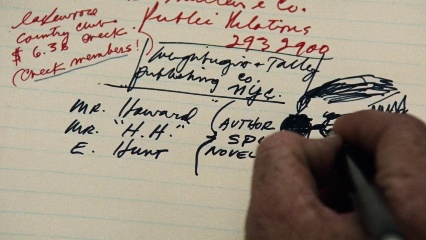 Lakewood
Country Club
$ 6.38 check
(check members!
& Co.
Public Relations
293 2900
& Tally
publishing co.
N.Y.C.
Mr. Howard
Mr. "H.H."
E. Hunt
AUTHOR
NOVEL